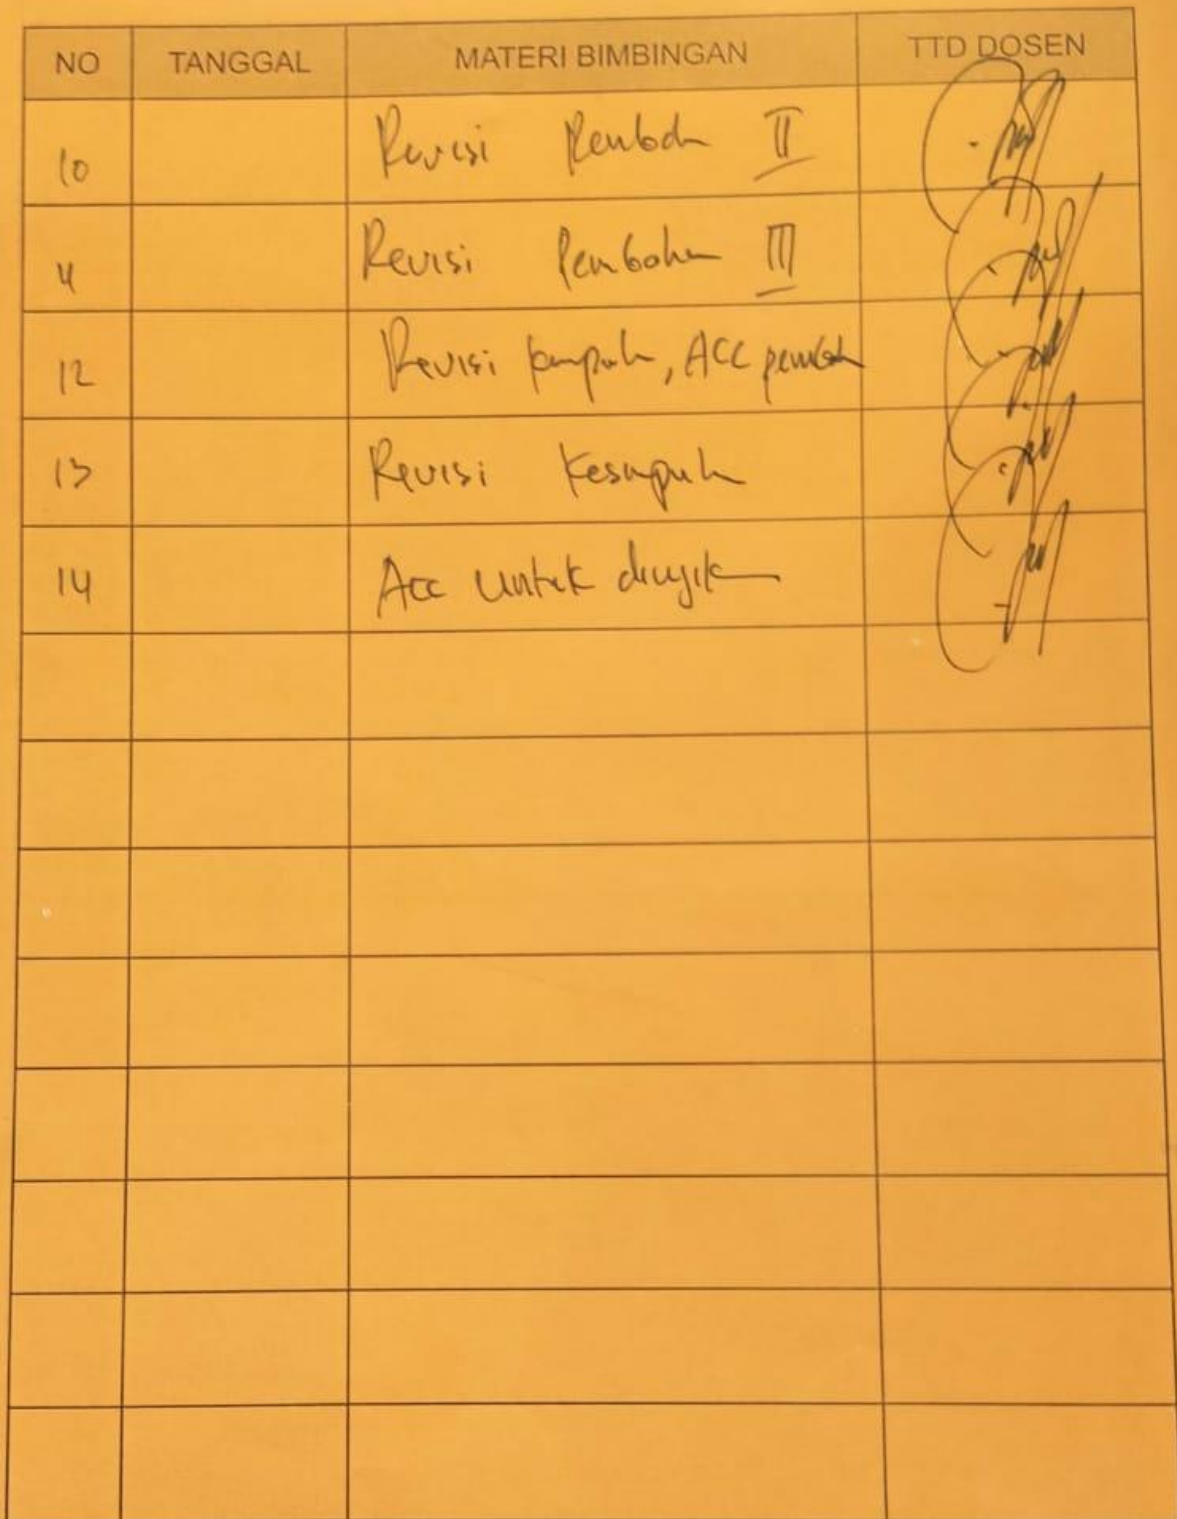 NO TANGGAL MATERI BIMBINGAN TTD DOSEN
10 Revisi Pembah II
11 Revisi Pembahan III
12 Revisi kesimpulan, ACC pembah
13 Revisi Kesimpulan
14 Acc untuk diujikan